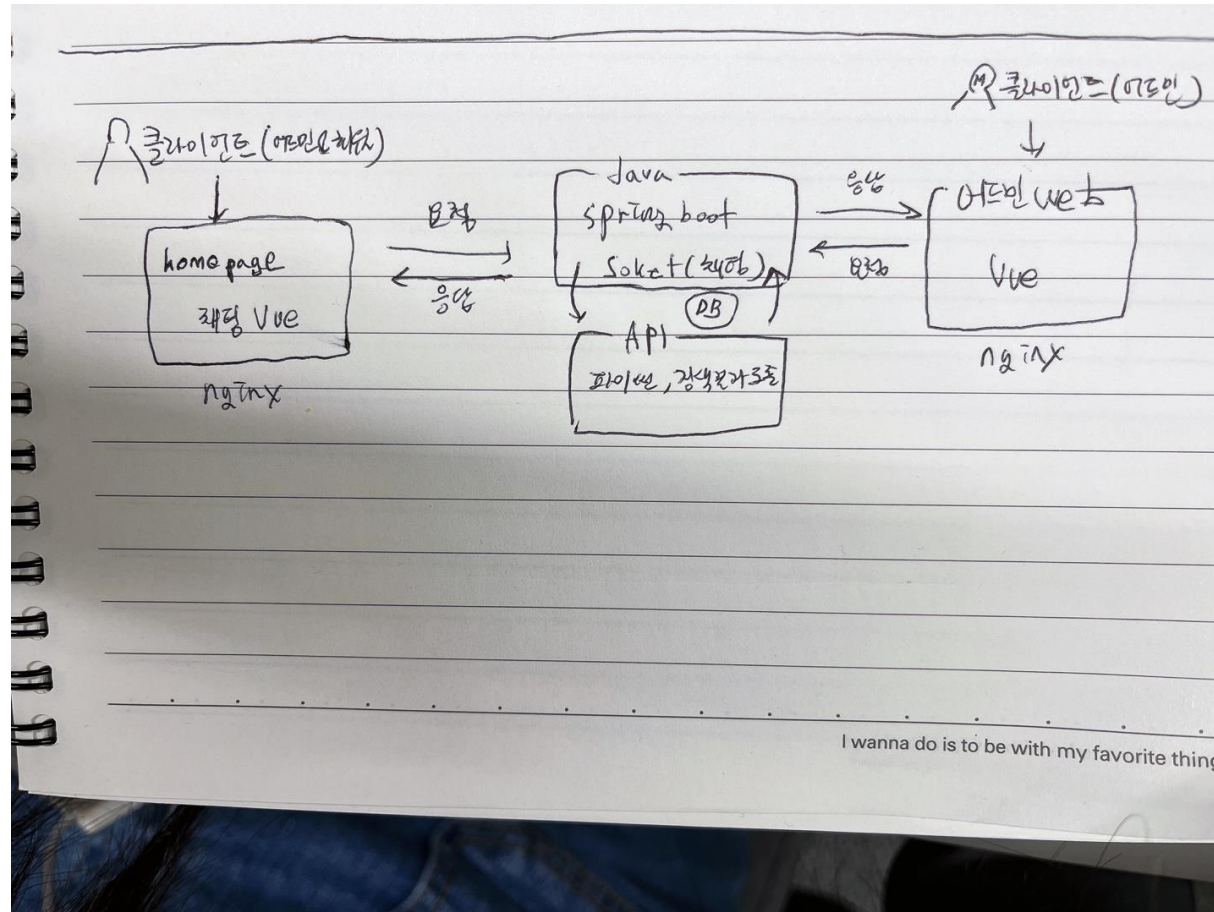 클라이언트 (어드민)
클라이언트 (어드민요
homepage
채팅 Vue
nginx
요청
응답
Java
spring boot
Soket (채팅)
DB
API
파이썬,
응답
요청
어드민 Web
Vue
nginx
I wanna do is to be with my favorite thing